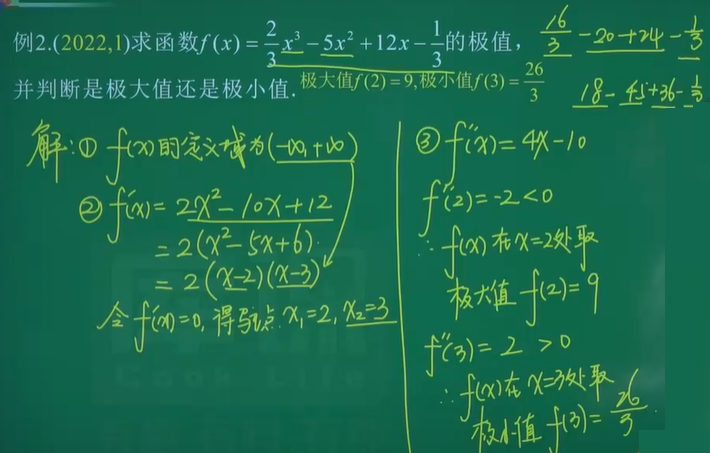 例2.(2022,1)求函数f(x)=2/3x³-5x²+12x-1/3的极值,
并判断是极大值还是极小值.
极大值f(2)=9,极小值f(3)=26/3
16/3-20+24-1/3
18-45+36-1/3
解:① f(x)的定义域为(-∞,+∞)
② f'(x)=2x²-10x+12
=2(x²-5x+6)
=2(x-2)(x-3)
令f'(x)=0,得驻点x₁=2,x₂=3
③ f''(x)=4x-10
f''(2)=-2<0
∴f(x)在x=2处取
极大值f(2)=9
f''(3)=2>0
∴f(x)在x=3处取
极小值f(3)=26/3